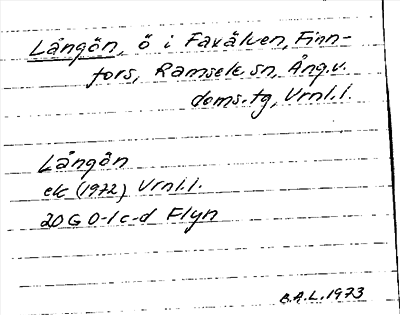 Långön, ö i Faxälven, Finn-
fors, Ramsele sn, Ång.v.
doms.tg, Vrnl.l.
Långön
ek (1972) Vrnl.l.
20 G 0-1 c-d Flyn
B.A.L. 1973